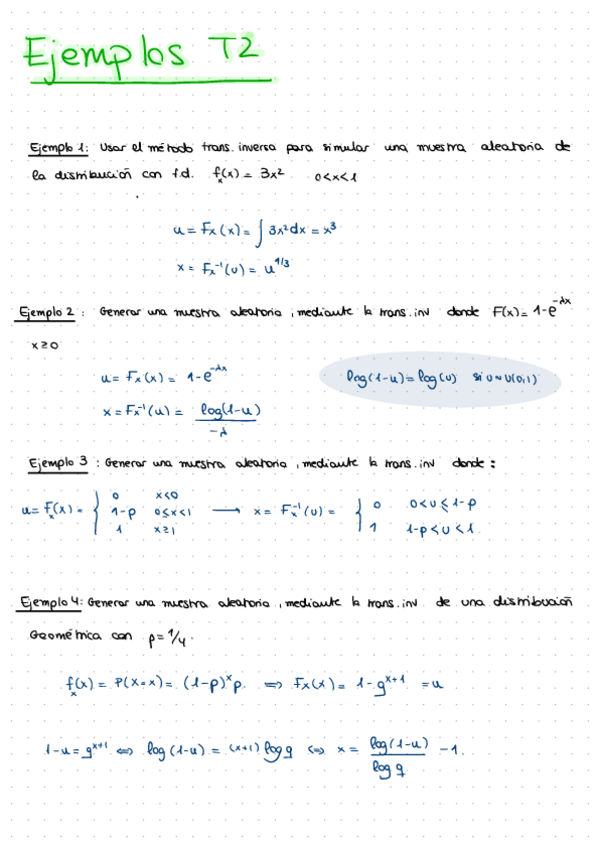 Ejemplos T2
Ejemplo 1: Usar el método trans. inversa para simular una muestra aleatoria de
la distribución con f.d. f(x) = 3x² 0<x<1
u = Fx(x) = ∫ 3x²dx = x³
x = Fx⁻¹(u) = u^1/3
Ejemplo 2 : Generar una muestra aleatoria, mediante la trans. inv donde F(x) = 1-e^-λx
x≥0
u = Fx(x) = 1-e^-λx
log(1-u) = log(u) si u~U(0,1)
x = Fx⁻¹(u) = log(1-u) / -λ
Ejemplo 3 : Generar una muestra aleatoria, mediante la trans. inv donde :
u = Fx(x) = { 0 x<0 ; 1-p 0≤x<1 ; 1 x≥1 → x = Fx⁻¹(u) = { 0 0<u≤1-p ; 1 1-p<u<1
Ejemplo 4: Generar una muestra aleatoria, mediante la trans. inv de una distribución
Geométrica con p = 1/4.
fx(x) = P(X=x) = (1-p)^x p. ⇒ Fx(x) = 1-q^x+1 = u
1-u = q^x+1 ⇔ log(1-u) = (x+1) log q ⇔ x = log(1-u) / log q -1.